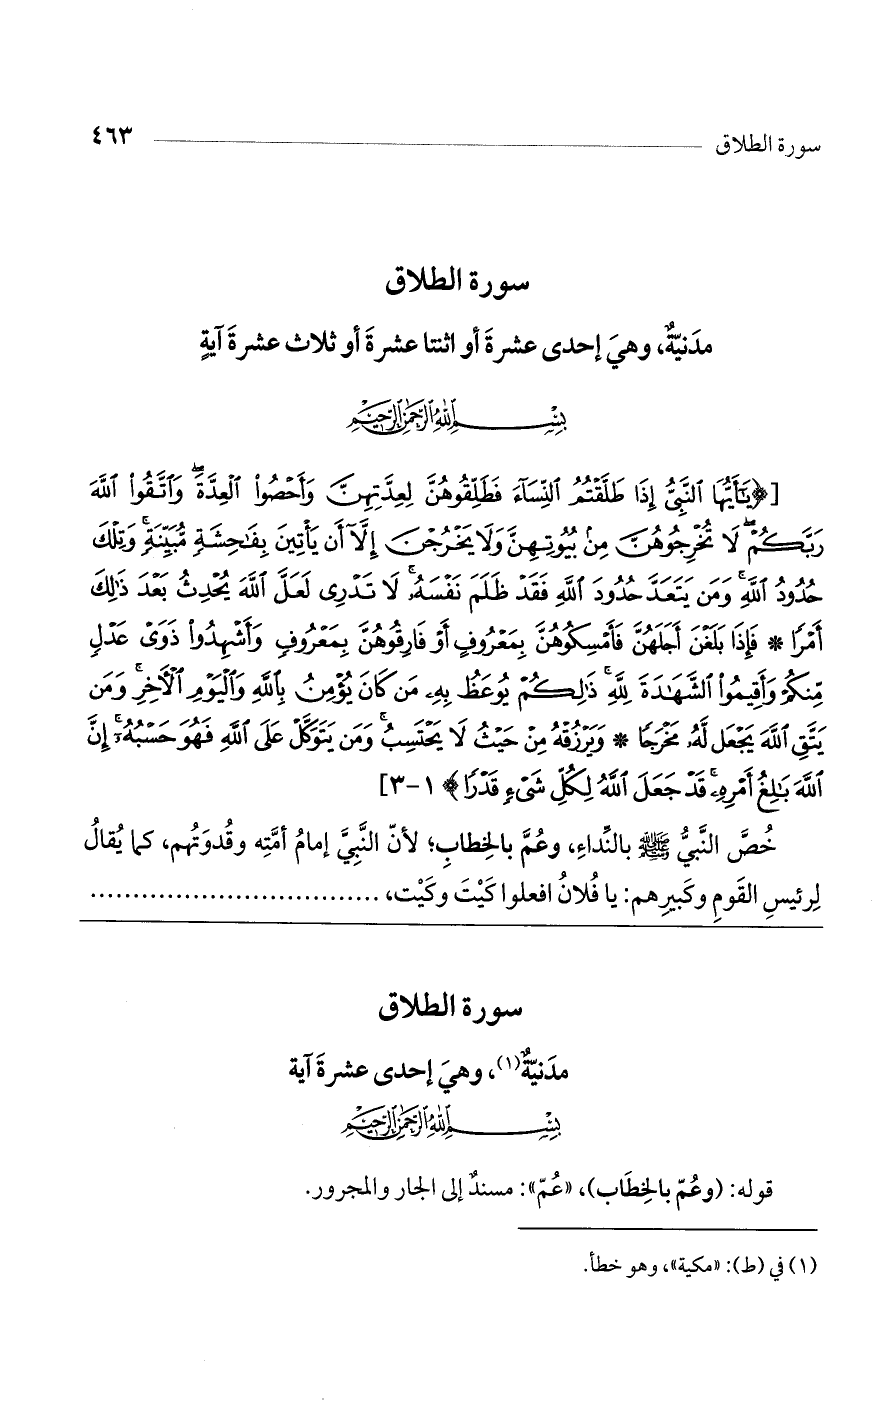 سورة الطلاق ٤٦٣
سورة الطلاق
مدَنيّةٌ، وهيَ إحدى عشرةَ أو اثنتا عشرةَ أو ثلاث عشرةَ آيةٍ
بِسْمِ اللَّهِ الرَّحْمَٰنِ الرَّحِيمِ
[﴿يَٰٓأَيُّهَا ٱلنَّبِىُّ إِذَا طَلَّقْتُمُ ٱلنِّسَآءَ فَطَلِّقُوهُنَّ لِعِدَّتِهِنَّ وَأَحْصُوا۟ ٱلْعِدَّةَ ۖ وَٱتَّقُوا۟ ٱللَّهَ
رَبَّكُمْ ۖ لَا تُخْرِجُوهُنَّ مِنۢ بُيُوتِهِنَّ وَلَا يَخْرُجْنَ إِلَّآ أَن يَأْتِينَ بِفَٰحِشَةٍ مُّبَيِّنَةٍ ۚ وَتِلْكَ
حُدُودُ ٱللَّهِ ۚ وَمَن يَتَعَدَّ حُدُودَ ٱللَّهِ فَقَدْ ظَلَمَ نَفْسَهُۥ ۚ لَا تَدْرِى لَعَلَّ ٱللَّهَ يُحْدِثُ بَعْدَ ذَٰلِكَ
أَمْرًا * فَإِذَا بَلَغْنَ أَجَلَهُنَّ فَأَمْسِكُوهُنَّ بِمَعْرُوفٍ أَوْ فَارِقُوهُنَّ بِمَعْرُوفٍ وَأَشْهِدُوا۟ ذَوَىْ عَدْلٍ
مِّنكُمْ وَأَقِيمُوا۟ ٱلشَّهَٰدَةَ لِلَّهِ ۚ ذَٰلِكُمْ يُوعَظُ بِهِۦ مَن كَانَ يُؤْمِنُ بِٱللَّهِ وَٱلْيَوْمِ ٱلْءَاخِرِ ۚ وَمَن
يَتَّقِ ٱللَّهَ يَجْعَل لَّهُۥ مَخْرَجًا * وَيَرْزُقْهُ مِنْ حَيْثُ لَا يَحْتَسِبُ ۚ وَمَن يَتَوَكَّلْ عَلَى ٱللَّهِ فَهُوَ حَسْبُهُۥٓ ۚ إِنَّ
ٱللَّهَ بَٰلِغُ أَمْرِهِۦ ۚ قَدْ جَعَلَ ٱللَّهُ لِكُلِّ شَىْءٍ قَدْرًا﴾ ١-٣]
خُصَّ النَّبيُّ ﷺ بالنِّداءِ، وعُمَّ بالخِطابِ؛ لأنّ النَّبيَّ إمامُ أمَّتِه وقُدوَتُهم، كما يُقالُ
لِرئيسِ القَومِ وكَبيرِهم: يا فُلانُ افعلوا كَيْتَ وكَيْت، ................................
سورة الطلاق
مدَنيّةٌ(١)، وهيَ إحدى عشرةَ آية
بِسْمِ اللَّهِ الرَّحْمَٰنِ الرَّحِيمِ
قوله: (وعُمّ بالخِطَاب)، «عُمّ»: مسندٌ إلى الجار والمجرور.
(١) في (ط): «مكية»، وهو خطأ.